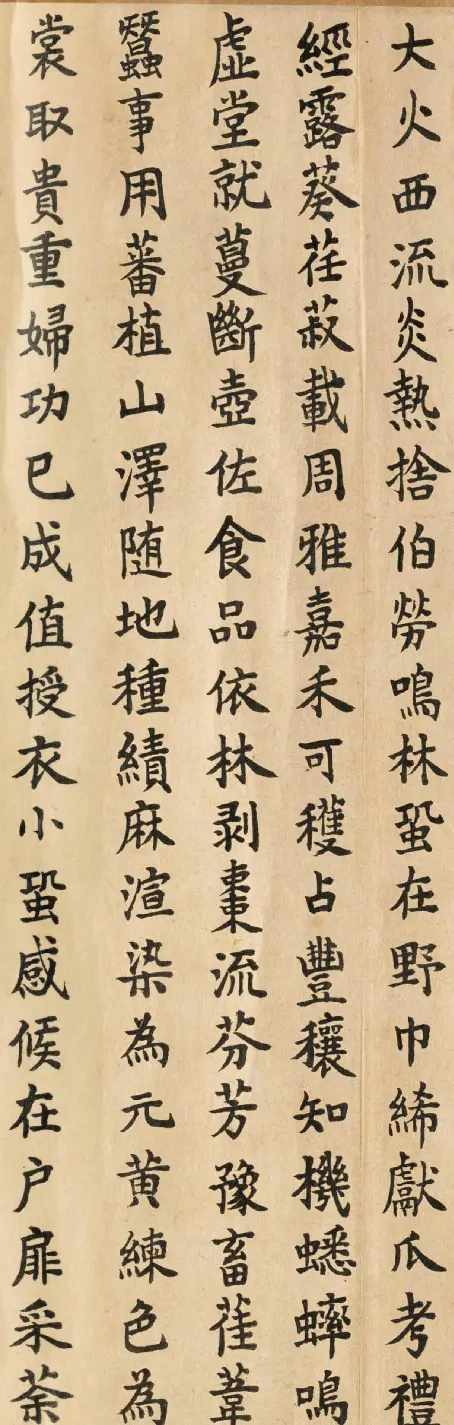 大火西流炎熱捨伯勞鳴林蛩在野巾絺獻瓜考禮
經露葵荏菽載周雅嘉禾可穫占豐穰知機蟋蟀鳴
虛堂就蔓斷壺佐食品依林剥棗流芬芳豫畜萑葦
蠶事用蕃植山澤随地種績麻渲染為元黃練色為
裳取貴重婦功已成值授衣小蛩感候在户扉采荼